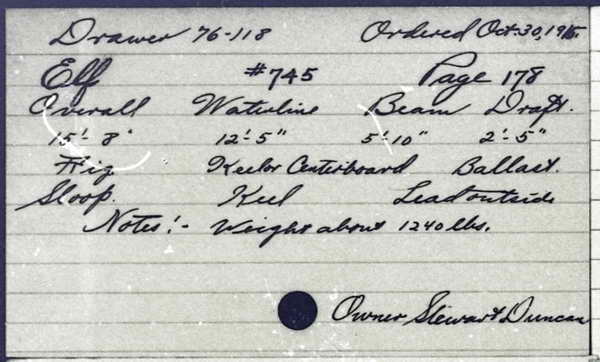 Drawer 76-118 Ordered Oct. 30, 1915.
Elf #745 Page 178
Overall Waterline Beam Draft.
15'- 8" 12'- 5" 5'- 10" 2'- 5"
Rig Keel or Centerboard Ballast.
Sloop. Keel Lead outside
Notes:- Weight about 1240 lbs.
Owner Stewart Duncan